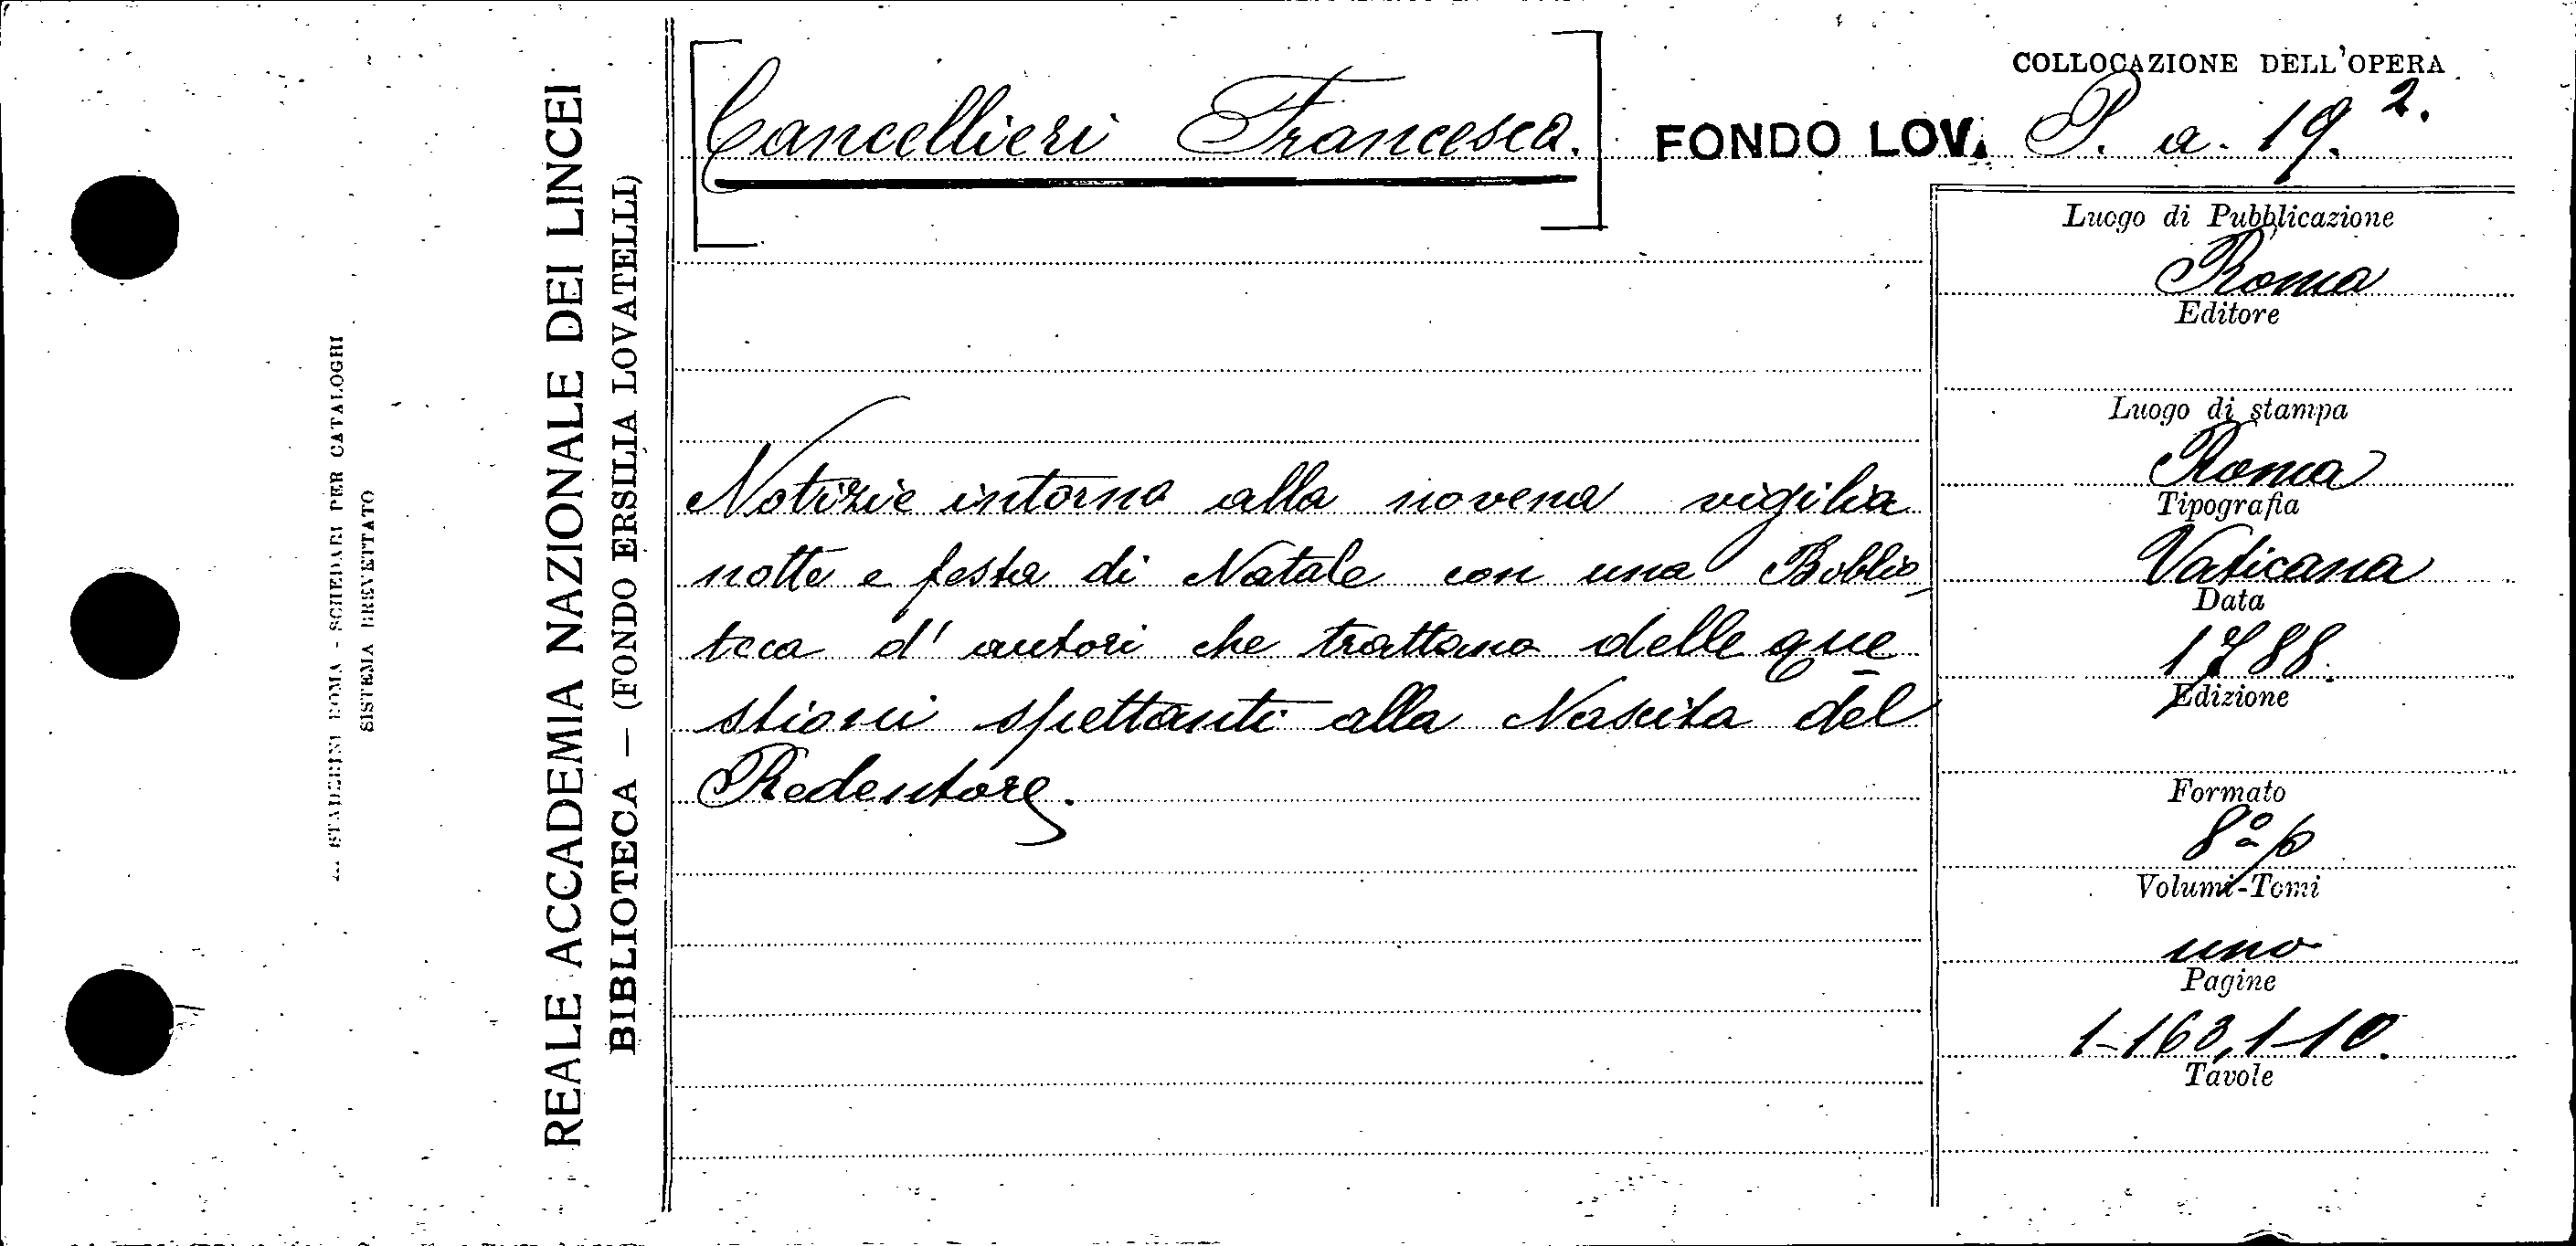 COLLOCAZIONE DELL'OPERA
[Cancellieri Francesco.] FONDO LOV. P. a. 19. 2.
Notizie intorno alla novena vigilia
notte e festa di Natale con una Biblio
teca d' autori che trattano delle que
stioni spettanti alla Nascita del
Redentore.
Luogo di Pubblicazione
Roma
Editore
Luogo di stampa
Roma
Tipografia
Vaticana
Data
1788.
Edizione
Formato
8º p
Volumi-Tomi
uno
Pagine
1-163, 1-10.
Tavole
REALE ACCADEMIA NAZIONALE DEI LINCEI
BIBLIOTECA — (FONDO ERSILIA LOVATELLI)
STADERINI ROMA - SCHEDARI PER CATALOGHI
SISTEMA BREVETTATO